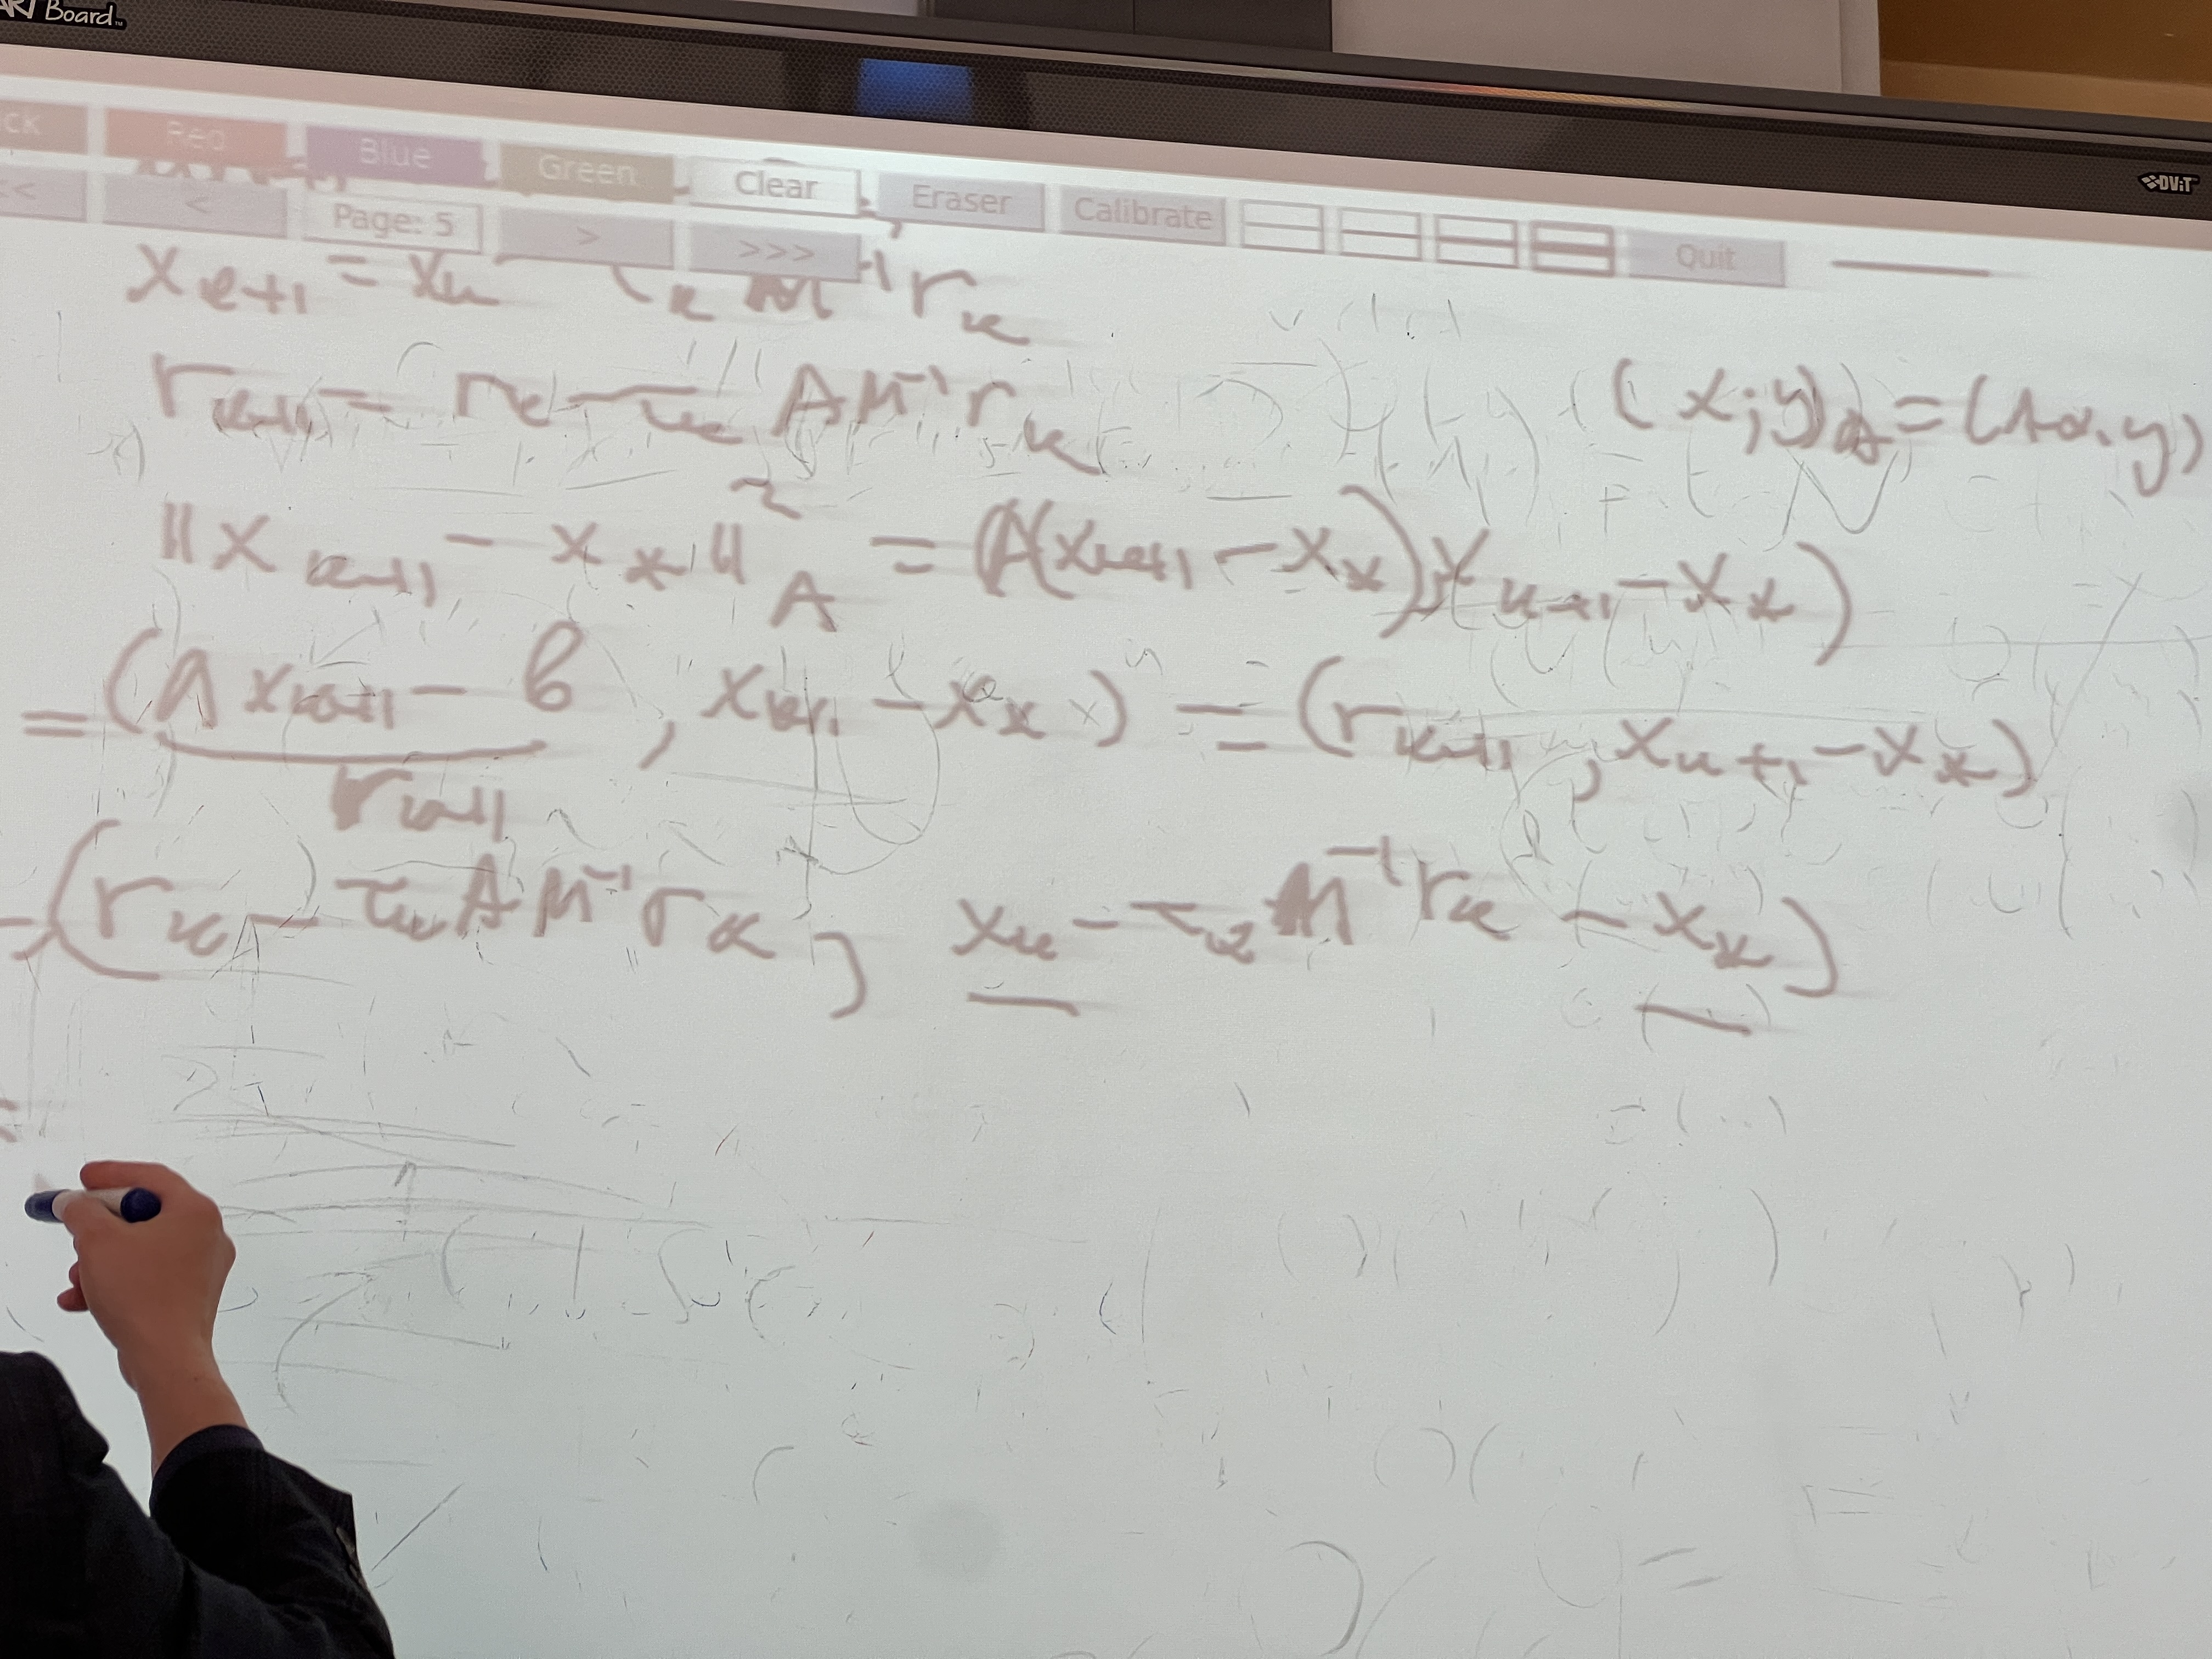 Board
DViT
Red Blue Green Clear Eraser Calibrate Quit
< Page: 5 > >>>
x_{k+1} = x_k - τ_k M^{-1} r_k
r_{k+1} = r_k - τ_k A M^{-1} r_k
(x, y)_A = (Ax, y)
||x_{k+1} - x_*||²_A = (A(x_{k+1} - x_*), x_{k+1} - x_*)
= (Ax_{k+1} - b, x_{k+1} - x_*) = (r_{k+1}, x_{k+1} - x_*)
r_{k+1}
= (r_k - τ_k A M^{-1} r_k, x_k - τ_k M^{-1} r_k - x_*)
=